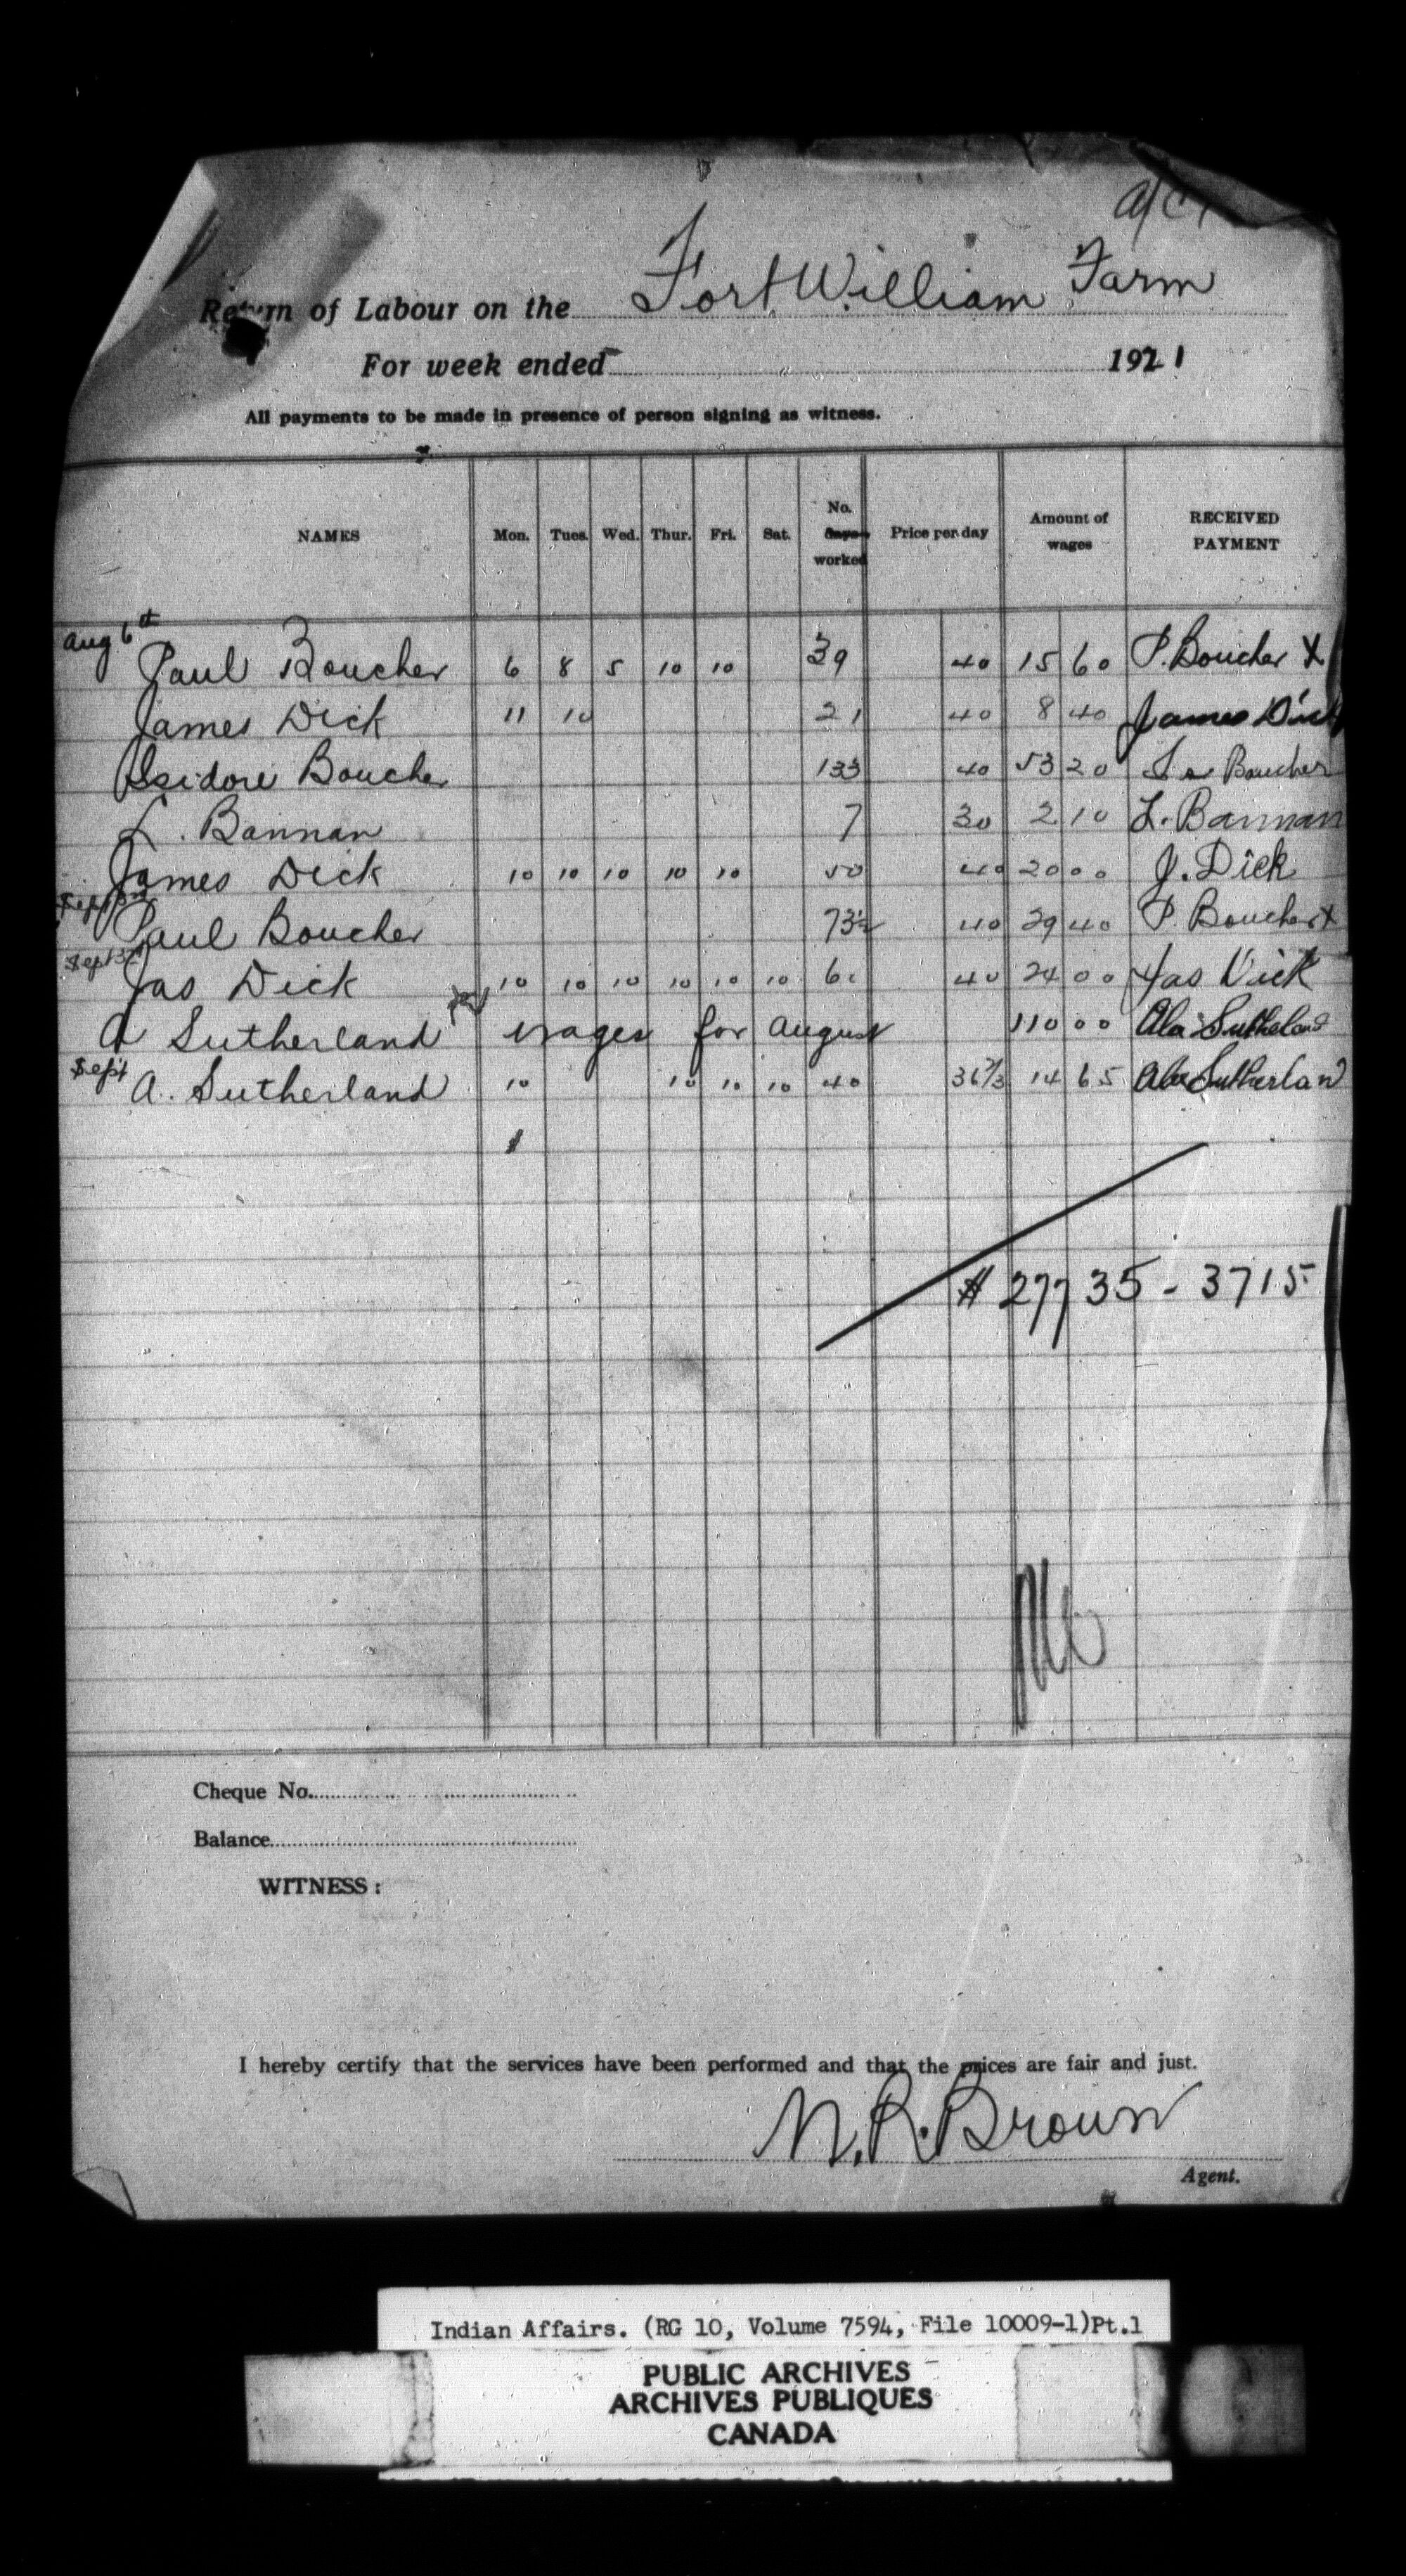 a/c
Return of Labour on the Fort William Farm
For week ended 1921
All payments to be made in presence of person signing as witness.
NAMES Mon. Tues. Wed. Thur. Fri. Sat. No. days worked Price per day Amount of wages RECEIVED PAYMENT
Aug 6th
Paul Boucher 6 8 5 10 10 39 40 15 60 P. Boucher X
James Dick 11 10 21 40 8 40 James Dick
Isidore Boucher 133 40 53 20 Is Boucher
L. Bannan 7 30 2 10 L. Bannan
James Dick 10 10 10 10 10 50 40 20 00 J. Dick
Sept 3rd
Paul Boucher 73½ 40 29 40 P. Boucher X
Sept 3rd
Jas Dick 10 10 10 10 10 10 60 40 24 00 Jas Dick
A Sutherland wages for August 110 00 Alex Sutherland
Sept A. Sutherland 10 10 10 10 40 36⅔ 14 65 Alex Sutherland
$ 277 35 - 3715
Cheque No.
Balance
WITNESS:
I hereby certify that the services have been performed and that the prices are fair and just.
N. R. Brown
Agent.
Indian Affairs. (RG 10, Volume 7594, File 10009-1)Pt.1
PUBLIC ARCHIVES
ARCHIVES PUBLIQUES
CANADA